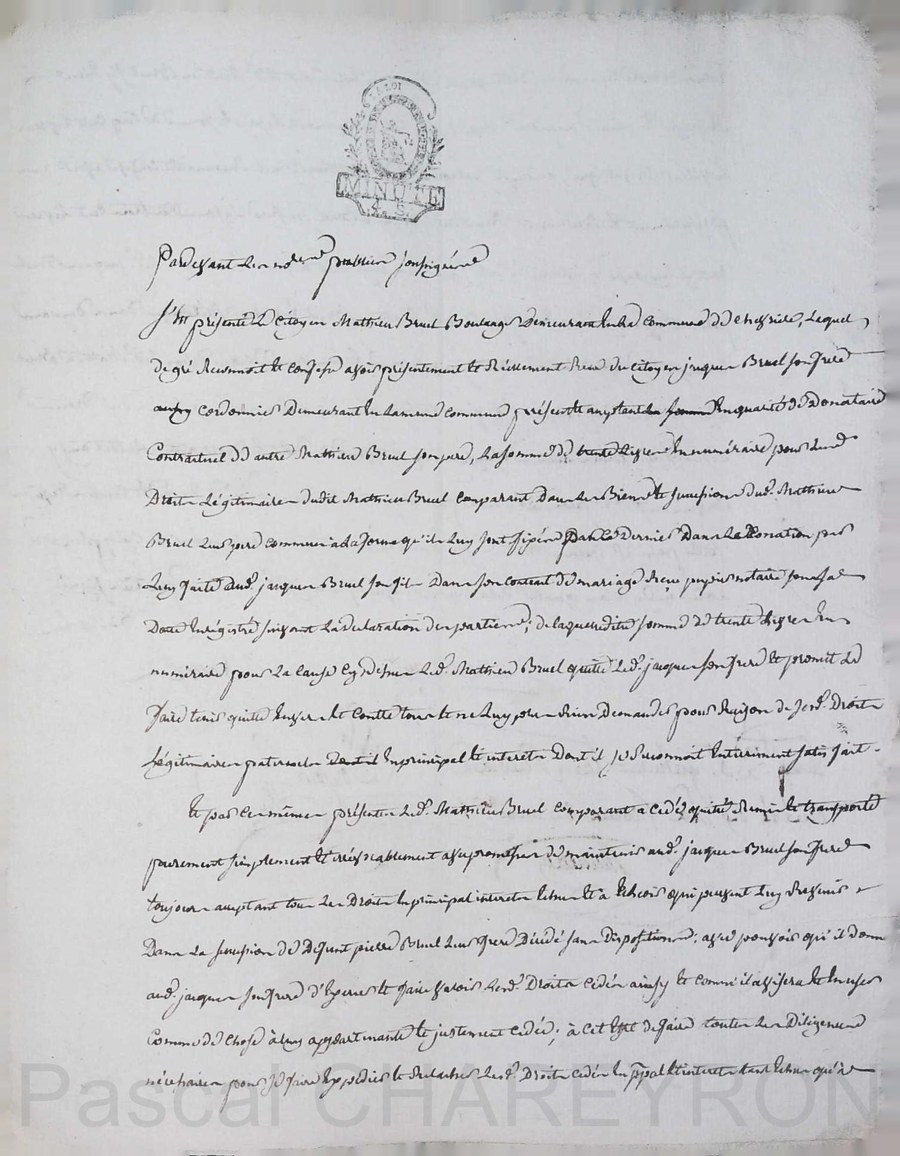 LA LOI
MINUTE
4 S.
Pardevant les no.res publics soussignés
S'est présenté le Citoyen Mathieu Bruel Boulanger Demeurant en la Commune de lequel
de gré Reconnoit et confesse avoir présentement et Réellement Reçu du Citoyen jacques Bruel son frere
cordonnier Demeurant en la meme Commune présent et acceptant en qualité de Donataire
Contractuel de autre Mathieu Bruel son pere, la somme de trente livres en numéraire pour les
Droits Légitimaires dudit Mathieu Bruel comparant Dans les Biens et succession dud. Mathieu
Bruel leur pere commun à la forme qu'ils luy sont fixés Par le Dernier Dans la Donation par
Luy faite aud. jacques Bruel son fils Dans son contrat de mariage Reçu notaire
Enregistré suivant la déclaration des parties; de laquelle dite somme de trente livres en
numéraire pour la cause cy dessus led. Mathieu Bruel quitte led. jacques son frere et promet le
faire tenir quitte Envers et contre tous et ne luy plus Rien Demander pour Raison de sesd. Droits
Légitimaires paternels en principal et interets Dont il se Reconnoit entierement satisfait.
Et par ces mêmes présentes led. Mathieu Bruel comparant a cedé, quitté, Remis et transporté
purement simplement et irrévocablement avec promesse de maintenir aud. jacques Bruel son frere
toujours acceptant tous les Droits en principal interets échus et à échoir qui peuvent luy Revenir
Dans la succession de Défunt pierre Bruel leur frere Décédé sans Dispositions; avec pouvoir qu'il donne
aud. jacques son frere d'Exercer et faire valoir lesd. Droits cedés ainsy et comme il avisera et en user
Comme de chose à luy appartenante et justement cedée; à cet Effet de faire toutes les Diligences
nécéssaires pour se faire Expédier et Relacher lesd. Droits cedés en ppal et interets tant échus qu'à
Pascal CHAREYRON